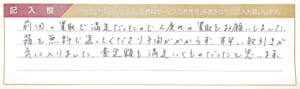 記入欄
前回の買取で満足だったので2度めの買取もお願いしました。
箱も無料で送ってくださり手間がかからず、早い取引が
気に入りました。査定額も満足いくものだったと思います。